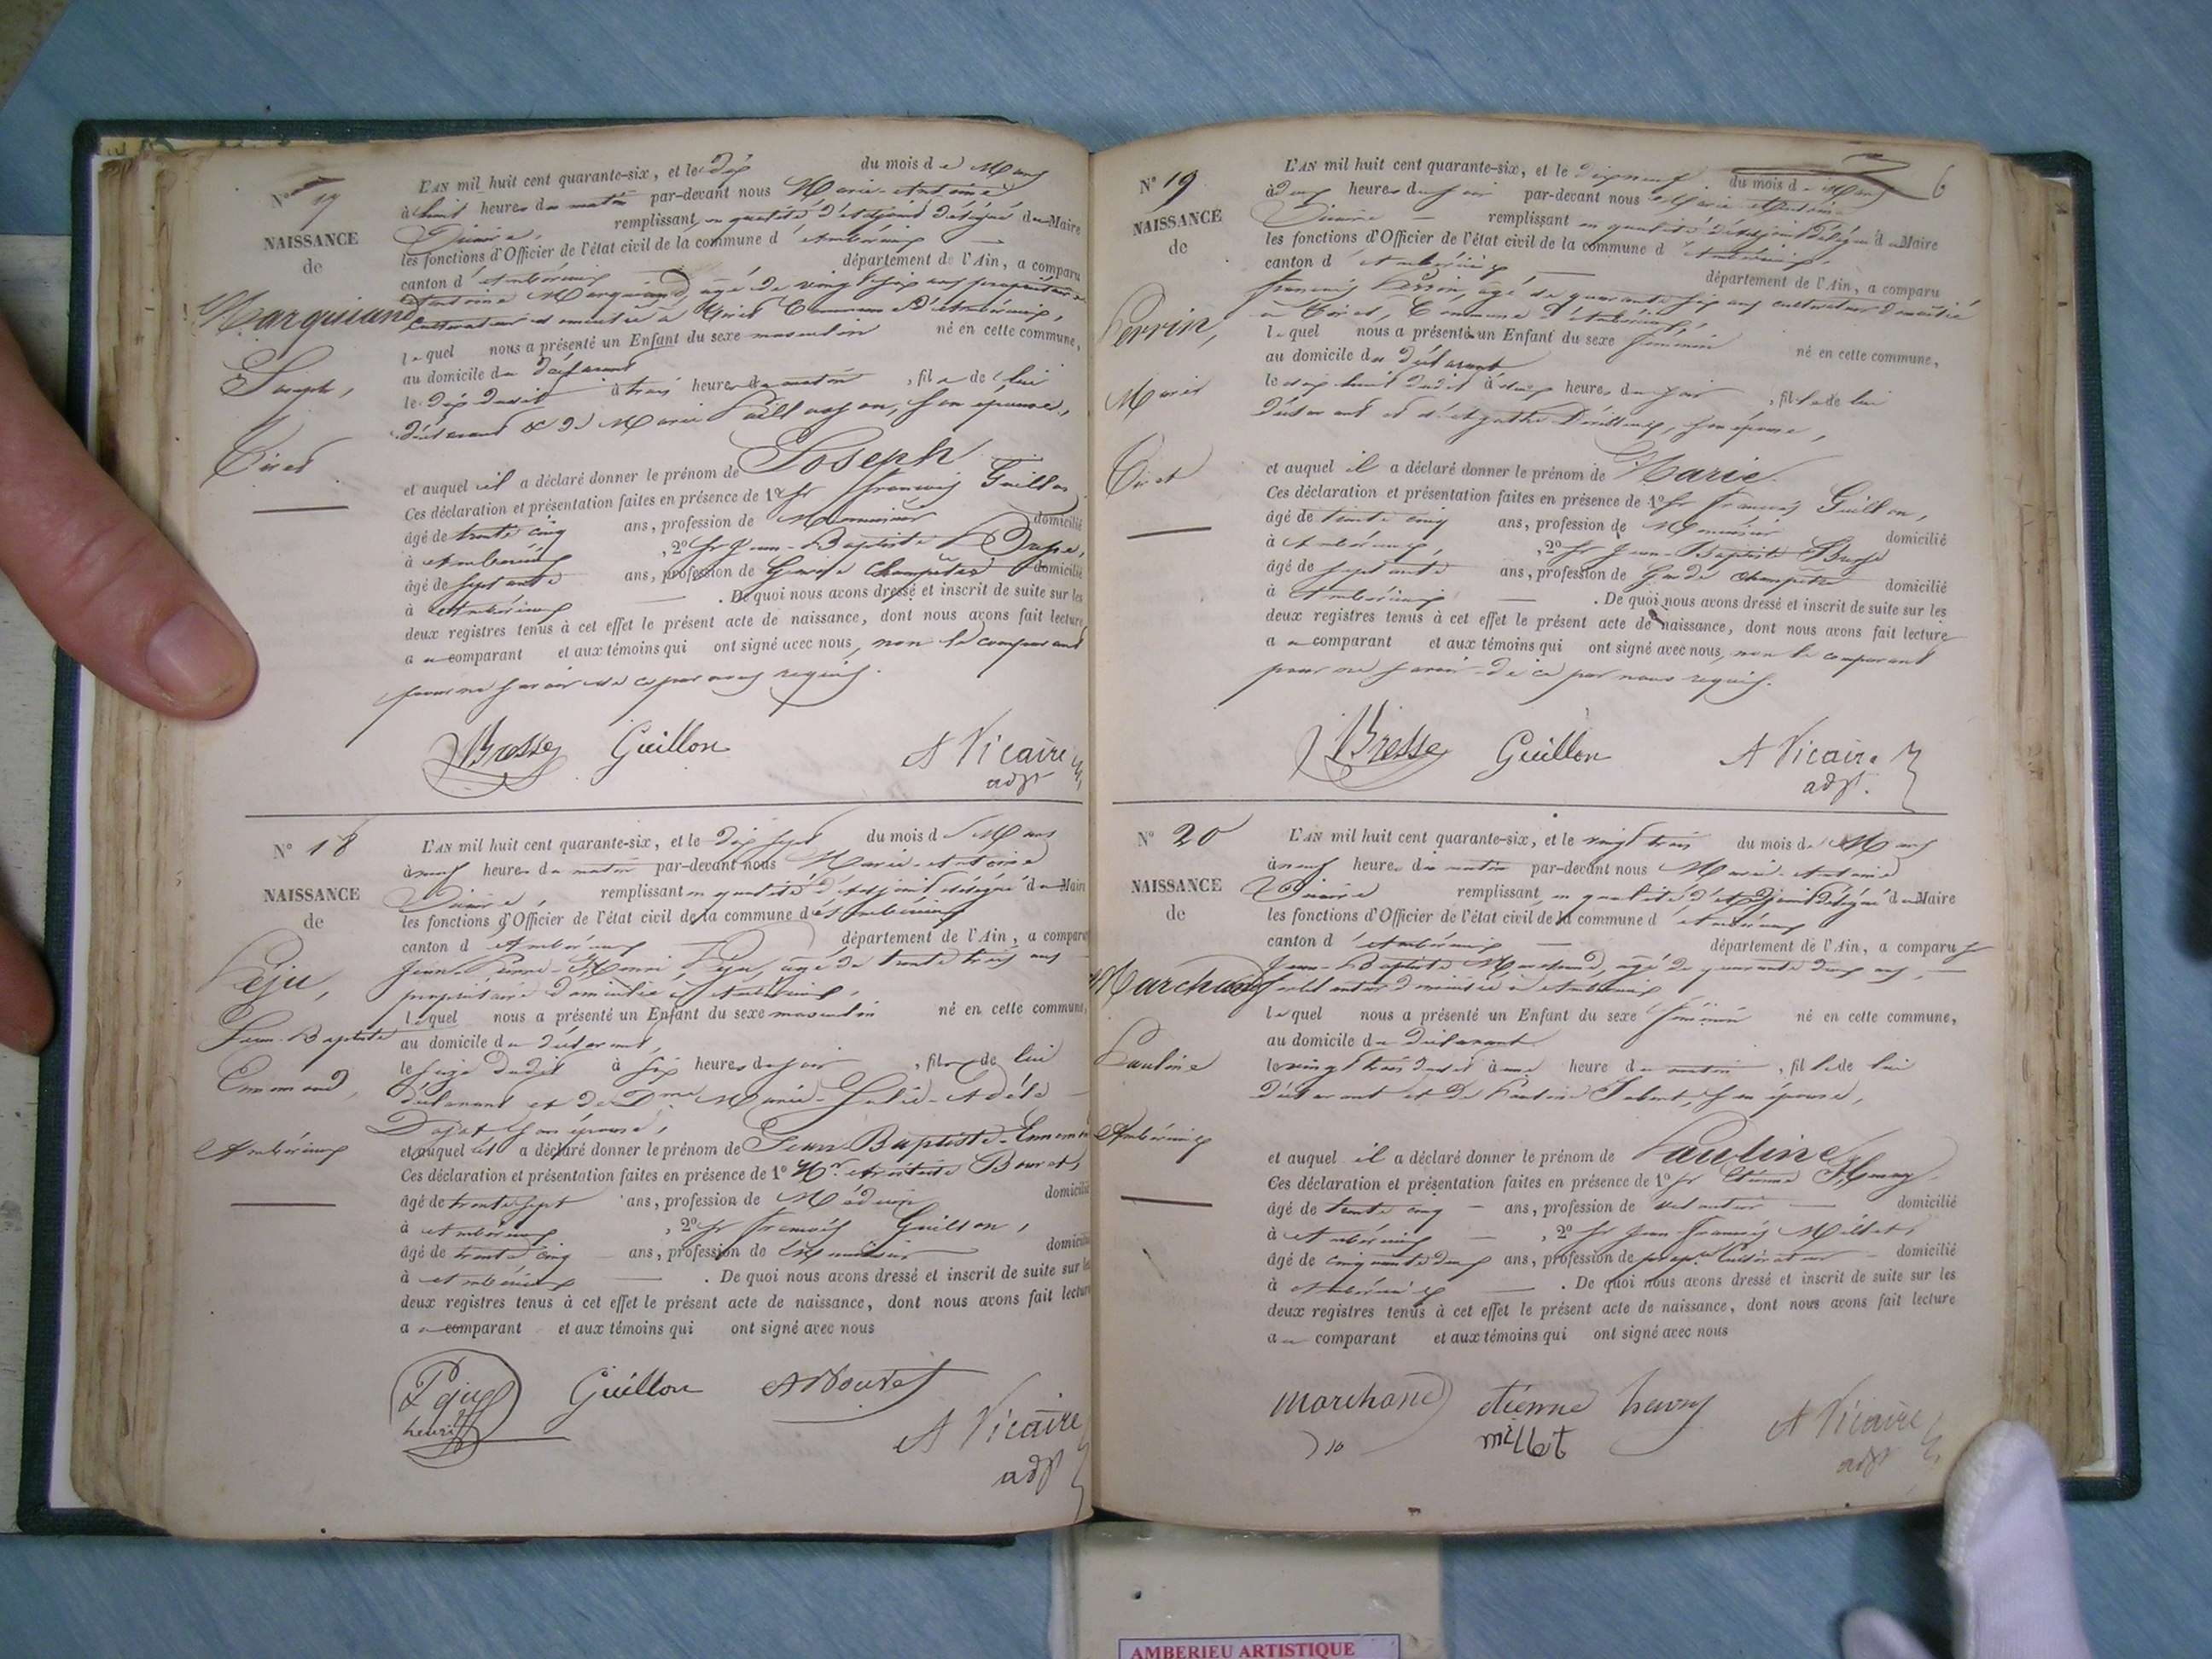 N° 17
NAISSANCE
de
Marquiand
Joseph,
Tiret
L'AN mil huit cent quarante-six, et le dix du mois de Mars
à huit heures du matin par-devant nous Marie-Antoine
Vicaire, remplissant en qualité d'Adjoint délégué du Maire
les fonctions d'Officier de l'état civil de la commune d'Ambérieux
canton d'Ambérieux département de l'Ain, a comparu
Antoine Marquiand, âgé de vingt six ans propriétaire
cultivateur domicilié à Tiret Commune d'Ambérieux,
lequel nous a présenté un Enfant du sexe masculin né en cette commune,
au domicile du déclarant
le dix dudit à trois heures du matin, fils de lui
déclarant & de Marie son épouse,
et auquel il a déclaré donner le prénom de Joseph
Ces déclaration et présentation faites en présence de 1° Sr François Guillon
âgé de trente cinq ans, profession de Menuisier domicilié
à Ambérieux, 2° Sr Jean-Baptiste Bresse,
âgé de septante ans, profession de Garde Champêtre domicilié
à Ambérieux. De quoi nous avons dressé et inscrit de suite sur les
deux registres tenus à cet effet le présent acte de naissance, dont nous avons fait lecture
au comparant et aux témoins qui ont signé avec nous, non le comparant
pour ne savoir de ce par nous requis.
Bresse Guillon A Vicaire
adjt
N° 18
NAISSANCE
de
Péju,
Jean-Baptiste
Ennemond,
Ambérieux
L'AN mil huit cent quarante-six, et le dix sept du mois de Mars
à neuf heures du matin par-devant nous Marie-Antoine
Vicaire remplissant en qualité d'Adjoint délégué du Maire
les fonctions d'Officier de l'état civil de la commune d'Ambérieux
canton d'Ambérieux département de l'Ain, a comparu
Jean-Pierre-Henri Péju, âgé de trente trois ans
propriétaire domicilié à Ambérieux,
lequel nous a présenté un Enfant du sexe masculin né en cette commune,
au domicile du déclarant,
le seize dudit à six heures du soir, fils de lui
déclarant et de Dme Marie-Julie-Adèle
son épouse,
et auquel il a déclaré donner le prénom de Jean-Baptiste-Ennemond
Ces déclaration et présentation faites en présence de 1° Mr Bouret
âgé de trente sept ans, profession de Médecin domicilié
à Ambérieux, 2° Sr François Guillon,
âgé de trente cinq ans, profession de Menuisier domicilié
à Ambérieux. De quoi nous avons dressé et inscrit de suite sur les
deux registres tenus à cet effet le présent acte de naissance, dont nous avons fait lecture
au comparant et aux témoins qui ont signé avec nous
Péju
henri Guillon ABouret
A Vicaire
adjt
6
N° 19
NAISSANCE
de
Perrin,
Marie
Tiret
L'AN mil huit cent quarante-six, et le dixneuf du mois de Mars
à deux heures du soir par-devant nous Marie Antoine
Vicaire remplissant en qualité d'Adjoint délégué du Maire
les fonctions d'Officier de l'état civil de la commune d'Ambérieux
canton d'Ambérieux département de l'Ain, a comparu
François Perrin, âgé de quarante six ans cultivateur domicilié
à Tiret, Commune d'Ambérieux,
lequel nous a présenté un Enfant du sexe féminin né en cette commune,
au domicile du déclarant
le dix huit dudit à deux heures du soir, fille de lui
déclarant et d'Agathe son épouse,
et auquel il a déclaré donner le prénom de Marie.
Ces déclaration et présentation faites en présence de 1° Sr François Guillon,
âgé de trente cinq ans, profession de Menuisier domicilié
à Ambérieux, 2° Sr Jean-Baptiste Bresse
âgé de septante ans, profession de Garde champêtre domicilié
à Ambérieux. De quoi nous avons dressé et inscrit de suite sur les
deux registres tenus à cet effet le présent acte de naissance, dont nous avons fait lecture
au comparant et aux témoins qui ont signé avec nous, non le comparant
pour ne savoir de ce par nous requis.
Bresse Guillon A Vicaire
adjt.
N° 20
NAISSANCE
de
Marchand
Pauline
Ambérieux
L'AN mil huit cent quarante-six, et le vingt trois du mois de Mars
à neuf heures du matin par-devant nous Marie-Antoine
Vicaire remplissant en qualité d'Adjoint délégué du Maire
les fonctions d'Officier de l'état civil de la commune d'Ambérieux
canton d'Ambérieux département de l'Ain, a comparu Sr
Jean-Baptiste Marchand, âgé de quarante deux ans,
domicilié à Ambérieux
lequel nous a présenté un Enfant du sexe féminin né en cette commune,
au domicile du déclarant
le vingt trois dudit à une heure du matin, fille de lui
déclarant et de Pauline son épouse,
et auquel il a déclaré donner le prénom de Pauline
Ces déclaration et présentation faites en présence de 1° Sr Etienne Henry
âgé de trente cinq ans, profession de domicilié
à Ambérieux, 2° Sr Jean François Millet,
âgé de cinquante deux ans, profession de propre Cultivateur domicilié
à Ambérieux. De quoi nous avons dressé et inscrit de suite sur les
deux registres tenus à cet effet le présent acte de naissance, dont nous avons fait lecture
au comparant et aux témoins qui ont signé avec nous
marchand étienne henry A Vicaire
millet adjt
AMBERIEU ARTISTIQUE